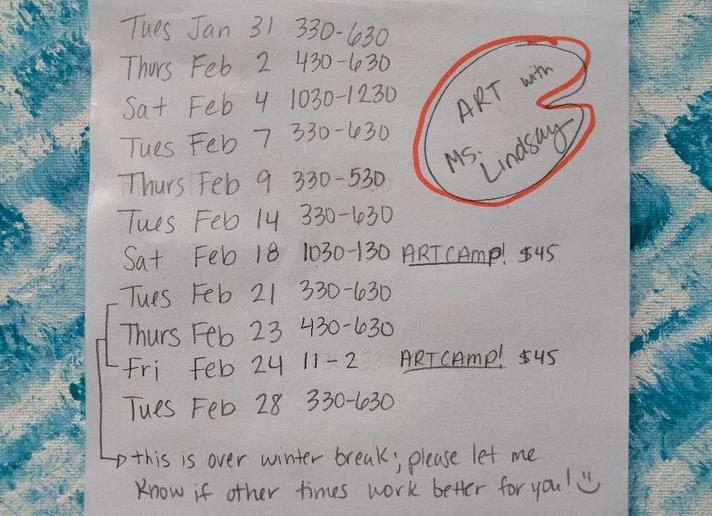 Tues Jan 31 330-630
Thurs Feb 2 430-630
Sat Feb 4 1030-1230
Tues Feb 7 330-630
Thurs Feb 9 330-530
Tues Feb 14 330-630
Sat Feb 18 1030-130 ARTCAMP! $45
Tues Feb 21 330-630
Thurs Feb 23 430-630
Fri Feb 24 11-2 ARTCAMP! $45
Tues Feb 28 330-630
this is over winter break; please let me
know if other times work better for you!
ART with
Ms. Lindsay